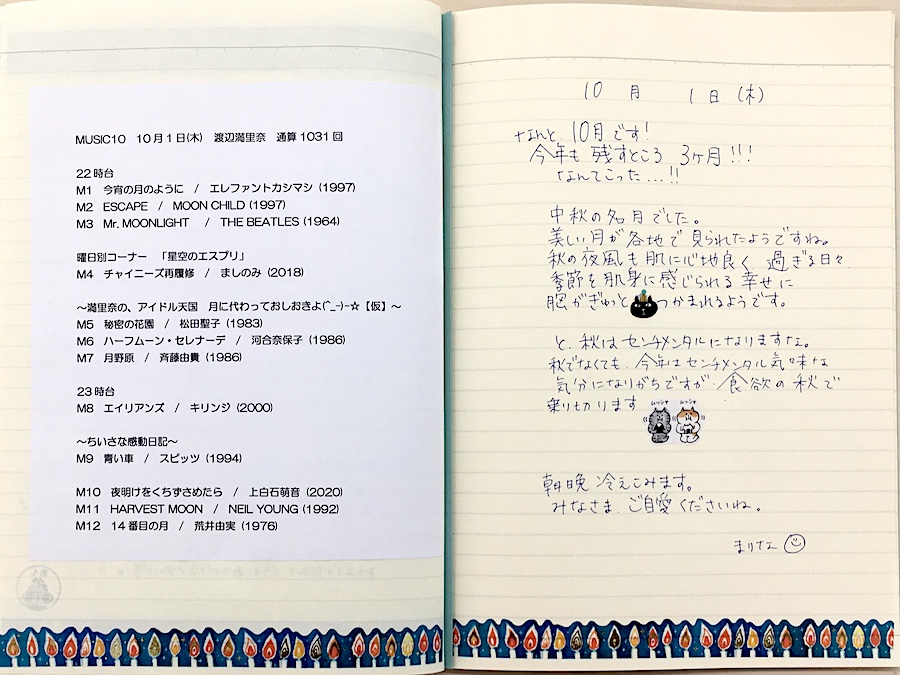 MUSIC10 10月1日(木) 渡辺満里奈 通算1031回
22時台
M1 今宵の月のように / エレファントカシマシ (1997)
M2 ESCAPE / MOON CHILD (1997)
M3 Mr. MOONLIGHT / THE BEATLES (1964)
曜日別コーナー 「星空のエスプリ」
M4 チャイニーズ再履修 / ましのみ (2018)
～満里奈の、アイドル天国 月に代わっておしおきよ(^_−)−☆【仮】～
M5 秘密の花園 / 松田聖子 (1983)
M6 ハーフムーン・セレナーデ / 河合奈保子 (1986)
M7 月野原 / 斉藤由貴 (1986)
23時台
M8 エイリアンズ / キリンジ (2000)
～ちいさな感動日記～
M9 青い車 / スピッツ (1994)
M10 夜明けをくちずさめたら / 上白石萌音 (2020)
M11 HARVEST MOON / NEIL YOUNG (1992)
M12 14番目の月 / 荒井由実 (1976)
10月 1日 (木)
なんと 10月です!
今年も 残すところ 3ヶ月!!!
なんてこった...!!
中秋の名月でした。
美しい月が各地で見られたようですね。
秋の夜風も肌に心地良く 過ぎる日々
季節を肌身に感じられる幸せに
胸がぎゅっと つかまれるようです。
と、秋はセンチメンタルになりますな。
秋でなくても、今年はセンチメンタル気味な
気分になりがちですが、食欲の秋で
乗り切ります
ムシャ ムシャ
朝晩 冷えこみます。
みなさま、ご自愛くださいね。
まりな